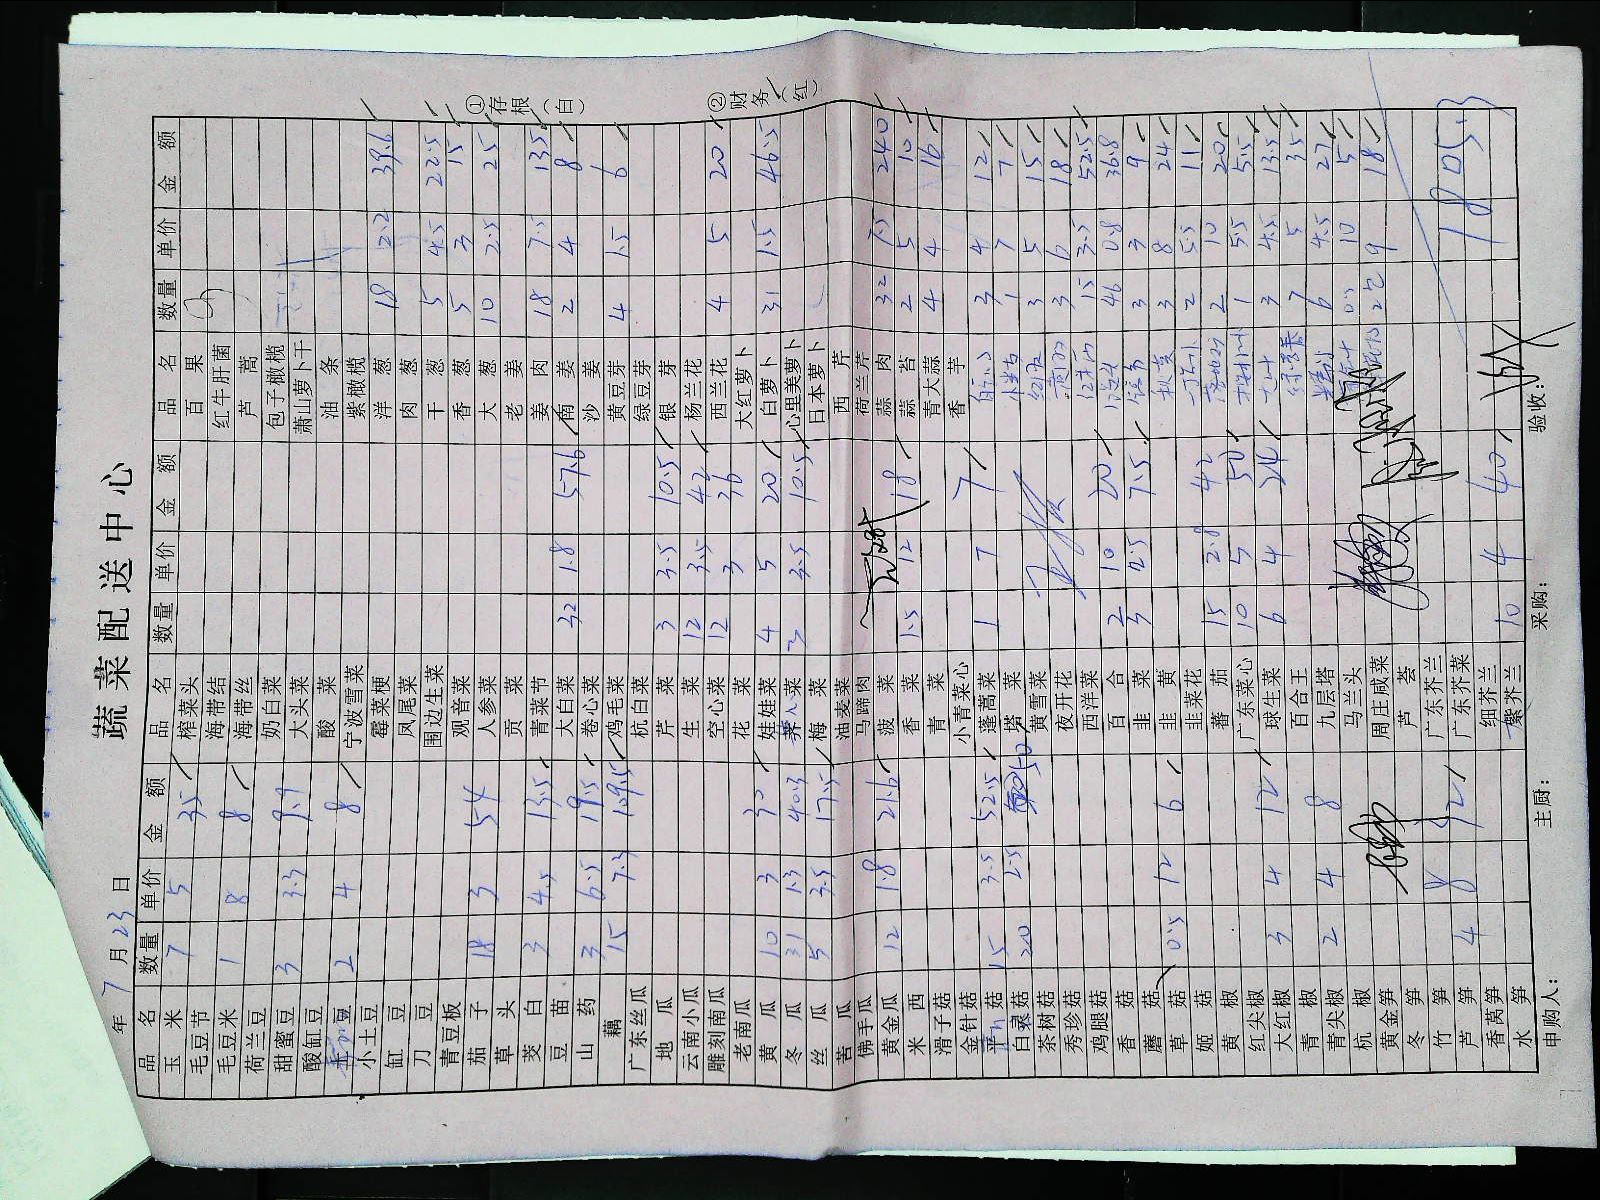 蔬菜配送中心
年 7 月 23 日
①存根(白)
②财务(红)
品名 数量 单价 金额 品名 数量 单价 金额 品名 数量 单价 金额
玉米 7 5 35
毛豆节
毛豆米 1 8 8
荷兰豆
甜蜜豆 3 3.3 9.9
酸缸豆
豆 2 4 8
小土豆
缸豆
刀豆
青豆板
茄子 18 3 54
草头
茭白 3 4.5 13.5
豆苗
山药 3 6.5 19.5
藕 15 7.3 109.5
广东丝瓜
地瓜
云南小瓜
雕刻南瓜
老南瓜
黄瓜 10 3 30
冬瓜 31 1.3 40.3
丝瓜 5 3.5 17.5
苦瓜
佛手瓜
黄金瓜 12 1.8 21.6
米西
滑子菇
金针菇
平菇 15 3.5 52.5
白灵菇 20 2.5 50
茶树菇
秀珍菇
鸡腿菇
香菇
蘑菇
草菇 0.5 12 6
姬菇
黄椒
红尖椒
大红椒 3 4 12
青椒
青尖椒 2 4 8
杭椒
黄金笋
冬笋
竹笋
芦笋 4 8 32
香莴笋
水笋
榨菜头
海带结
海带丝
奶白菜
大头菜
酸菜
宁波雪菜
霉菜梗
凤尾菜
围边生菜
观音菜
人参菜
贡菜
青菜节
大白菜 32 1.8 57.6
卷心菜
鸡毛菜
杭白菜
芹菜 3 3.5 10.5
生菜 12 3.5 42
空心菜 12 3 36
花菜
娃娃菜 4 5 20
菜 3 3.5 10.5
梅菜
油麦菜
马蹄肉
菠菜
香菜 1.5 12 18
青菜
小青菜心
蓬蒿菜 1 7 7
塔菜
黄雪菜
夜开花
西洋菜
百合 2 10 20
韭菜 3 2.5 7.5
韭黄
韭菜花
蕃茄 15 2.8 42
广东菜心 10 5 50
球生菜 6 4 24
百合王
九层塔
马兰头
周庄咸菜
芦荟
广东芥兰
广东芥菜
细芥兰
紫芥兰 10 4 40
百果
红牛肝菌
芦蒿
包子橄榄
萧山萝卜干
油条
紫橄榄
洋葱 18 2.2 39.6
肉葱
干葱 5 4.5 22.5
香葱 5 3 15
大葱 10 2.5 25
老姜
姜肉 18 7.5 135
南姜 2 4 8
沙姜
黄豆芽 4 1.5 6
绿豆芽
银芽
杨兰花
西兰花 4 5 20
大红萝卜
白萝卜 31 1.5 46.5
心里美萝卜
日本萝卜
西芹
荷兰芹
蒜肉 32 7.5 240
蒜苔 2 5 10
青大蒜 4 4 16
香芋
3 4 12
1 7 7
3 5 15
3 6 18
15 3.5 52.5
46 0.8 36.8
3 3 9
3 8 24
2 5.5 11
2 10 20
1 5.5 5.5
3 4.5 13.5
7 5 35
6 4.5 27
0.5 10 5
2 9 18
1805.3
申购人: 主厨: 采购: 验收: